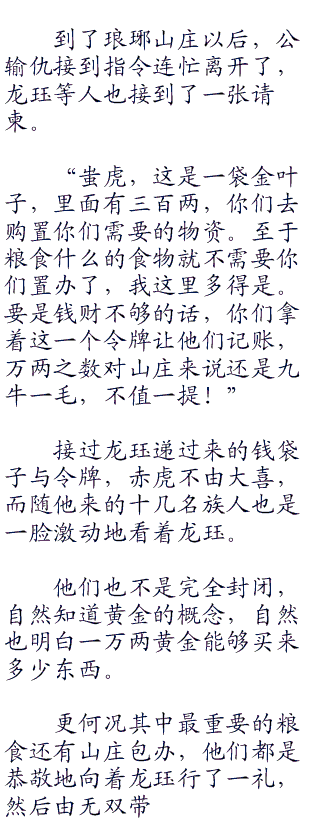 到了琅琊山庄以后，公
输仇接到指令连忙离开了，
龙珏等人也接到了一张请
柬。
“蚩虎，这是一袋金叶
子，里面有三百两，你们去
购置你们需要的物资。至于
粮食什么的食物就不需要你
们置办了，我这里多得是。
要是钱财不够的话，你们拿
着这一个令牌让他们记账，
万两之数对山庄来说还是九
牛一毛，不值一提！”
接过龙珏递过来的钱袋
子与令牌，赤虎不由大喜，
而随他来的十几名族人也是
一脸激动地看着龙珏。
他们也不是完全封闭，
自然知道黄金的概念，自然
也明白一万两黄金能够买来
多少东西。
更何况其中最重要的粮
食还有山庄包办，他们都是
恭敬地向着龙珏行了一礼，
然后由无双带